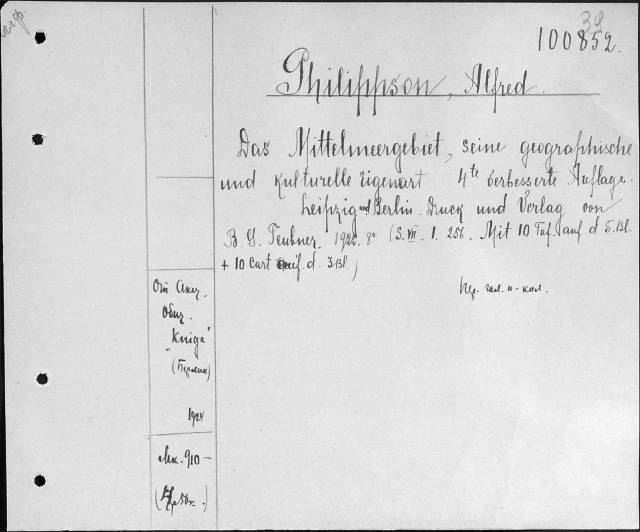 39
100852.
Philippson, Alfred.
Das Mittelmeergebiet, seine geographische
und kulturelle Eigenart 4te verbesserte Auflage.
Leipzig und Berlin. Druck und Verlag von
B. G. Teubner. 192 8° (S. VII. 1. 256. Mit 10 Taf. auf d 5. Bl.
+ 10 Cart auf. d. 3 Bl)
От Акц.
Общ.
"Kniga"
(Берлин)
1924
910-